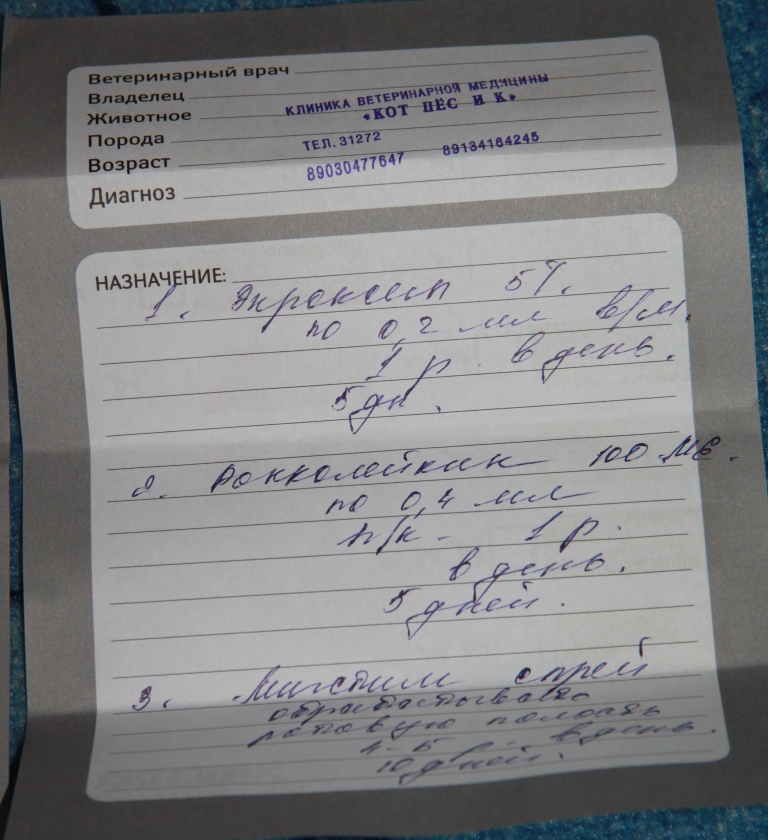 Ветеринарный врач
Владелец
Животное
КЛИНИКА ВЕТЕРИНАРНОЙ МЕДИЦИНЫ
«КОТ ПЁС И К»
Порода
ТЕЛ. 31272
Возраст
89030477647 89134164245
Диагноз
НАЗНАЧЕНИЕ:
1. Экроксин 5%.
по 0,2 мл в/м.
1 р. в день.
5 дн.
2. Ронколейкин 100 МЕ.
по 0,4 мл
п/к - 1 р.
в день.
5 дней.
3. спрей
обрабатывать
ротовую полость
4-5 в день.
10 дней.